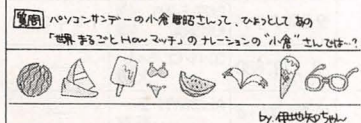 質問 パソコンサンデーの小倉智昭さんって、ひょっとして あの
「世界まるごとHowマッチ」のナレーションの"小倉"さんでは…?
by.伊地知ちゃん